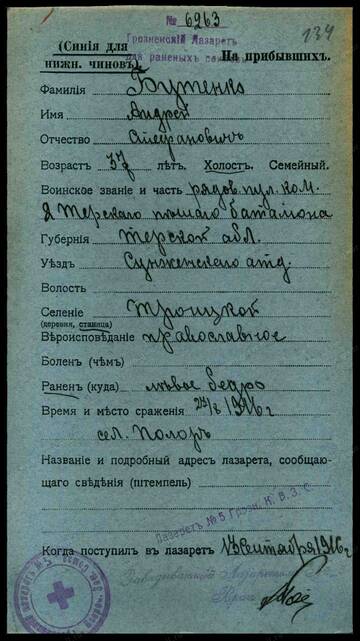 № 6263
134
Грозненскій Лазаретъ
для раненыхъ
(Синія для
нижн. чиновъ)
На прибывшихъ.
Фамилія Бутенко
Имя Андрей
Отчество Стефановичъ
Возрастъ 37 лѣтъ. Холост. Семейный.
Воинское званіе и часть рядов. пул. ком.
Терскаго пѣшаго баталіона
Губернія Терской обл.
Уѣздъ Сунженскаго отд.
Волость
Селеніе Троицкой
(деревня, станица)
Вѣроисповѣданіе православное
Боленъ (чѣмъ)
Раненъ (куда) лѣвое бедро
Время и мѣсто сраженія 1916 г
сел.
Названіе и подробный адресъ лазарета, сообщаю-
щаго свѣдѣнія (штемпель)
Лазаретъ № 5 Грозн. К. В. З. С.
Когда поступилъ въ лазаретъ 13 сентября 1916 г.